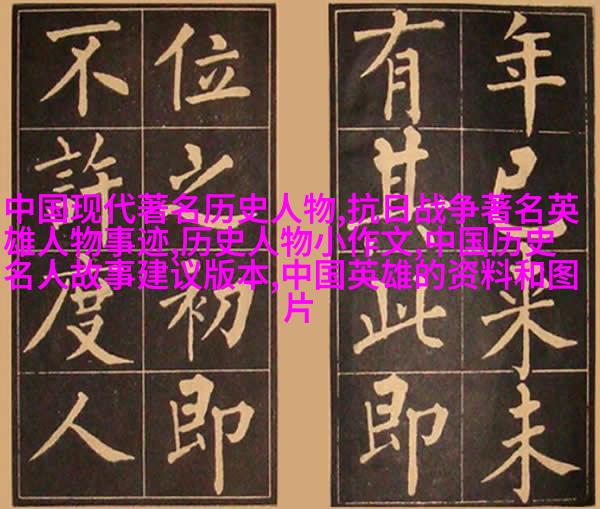 中国现代著名历史人物,抗日战争著名英
雄人物事迹,历史人物小作文,中国历史
名人故事建议版本,中国英雄的资料和图
片
年已来未
有其此即
位之初即
不許度人